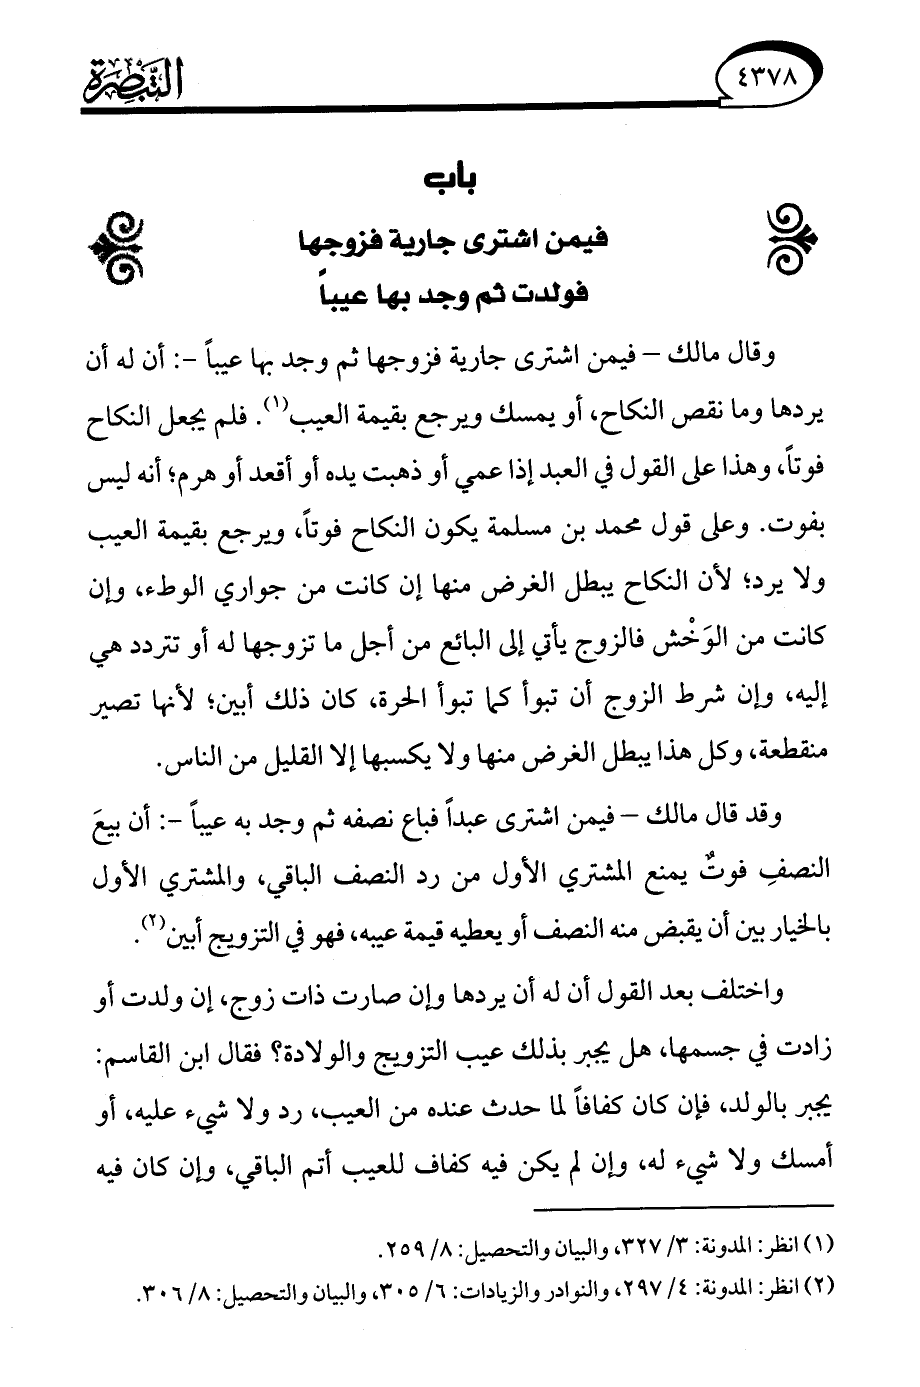 التبصرة
٤٣٧٨
باب
فيمن اشترى جارية فزوجها
فولدت ثم وجد بها عيباً
وقال مالك – فيمن اشترى جارية فزوجها ثم وجد بها عيباً –: أن له أن
يردها وما نقص النكاح، أو يمسك ويرجع بقيمة العيب(١). فلم يجعل النكاح
فوتاً، وهذا على القول في العبد إذا عمي أو ذهبت يده أو أقعد أو هرم؛ أنه ليس
بفوت. وعلى قول محمد بن مسلمة يكون النكاح فوتاً، ويرجع بقيمة العيب
ولا يرد؛ لأن النكاح يبطل الغرض منها إن كانت من جواري الوطء، وإن
كانت من الوَخْش فالزوج يأتي إلى البائع من أجل ما تزوجها له أو تتردد هي
إليه، وإن شرط الزوج أن تبوأ كما تبوأ الحرة، كان ذلك أبين؛ لأنها تصير
منقطعة، وكل هذا يبطل الغرض منها ولا يكسبها إلا القليل من الناس.
وقد قال مالك – فيمن اشترى عبداً فباع نصفه ثم وجد به عيباً –: أن بيعَ
النصفِ فوتٌ يمنع المشتري الأول من رد النصف الباقي، والمشتري الأول
بالخيار بين أن يقبض منه النصف أو يعطيه قيمة عيبه، فهو في التزويج أبين(٢).
واختلف بعد القول أن له أن يردها وإن صارت ذات زوج، إن ولدت أو
زادت في جسمها، هل يجبر بذلك عيب التزويج والولادة؟ فقال ابن القاسم:
يجبر بالولد، فإن كان كفافاً لما حدث عنده من العيب، رد ولا شيء عليه، أو
أمسك ولا شيء له، وإن لم يكن فيه كفاف للعيب أتم الباقي، وإن كان فيه
(١) انظر: المدونة: ٣/ ٣٢٧، والبيان والتحصيل: ٨/ ٢٥٩.
(٢) انظر: المدونة: ٤/ ٢٩٧، والنوادر والزيادات: ٦/ ٣٠٥، والبيان والتحصيل: ٨/ ٣٠٦.